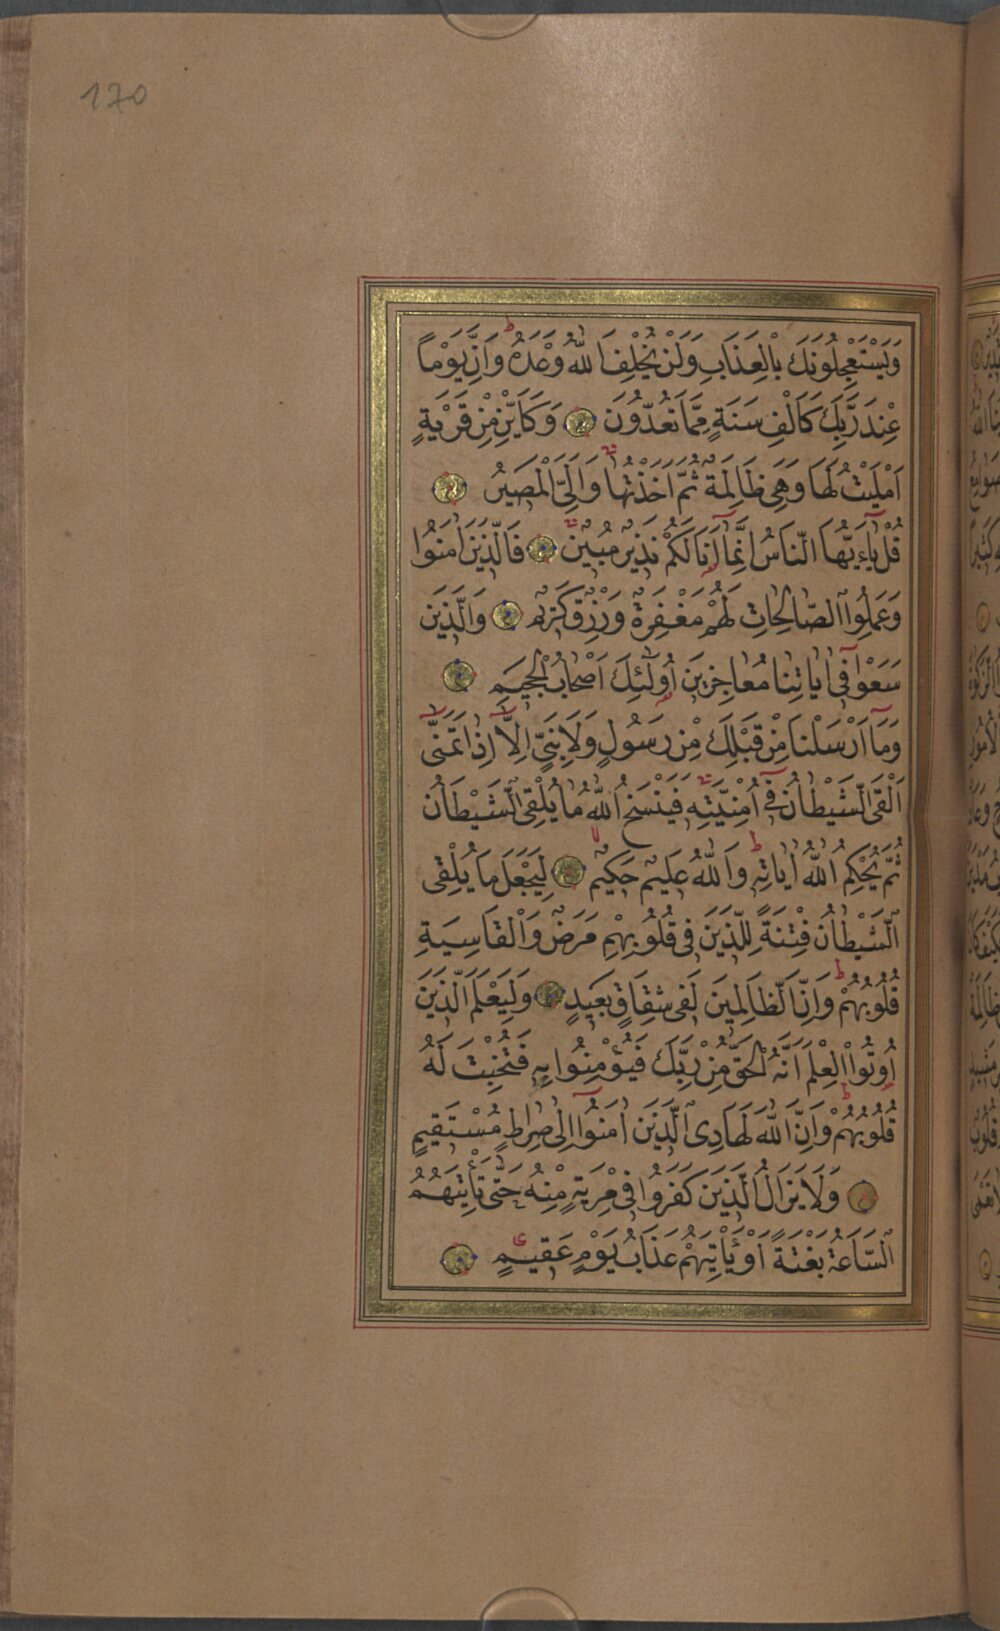 170
وَيَسْتَعْجِلُونَكَ بِالْعَذَابِ وَلَنْ يُخْلِفَ اللّٰهُ وَعْدَهُ ط وَاِنَّ يَوْمًا
عِنْدَ رَبِّكَ كَاَلْفِ سَنَةٍ مِمَّا تَعُدُّونَ وَكَاَيِّنْ مِنْ قَرْيَةٍ
اَمْلَيْتُ لَهَا وَهِيَ ظَالِمَةٌ ثُمَّ اَخَذْتُهَا وَاِلَيَّ الْمَصِيرُ
قُلْ يَٓا اَيُّهَا النَّاسُ اِنَّمَٓا اَنَا لَكُمْ نَذِيرٌ مُبِينٌ فَالَّذِينَ اٰمَنُوا
وَعَمِلُوا الصَّالِحَاتِ لَهُمْ مَغْفِرَةٌ وَرِزْقٌ كَرِيمٌ وَالَّذِينَ
سَعَوْا فِٓي اٰيَاتِنَا مُعَاجِزِينَ اُولٰٓئِكَ اَصْحَابُ الْجَحِيمِ
وَمَٓا اَرْسَلْنَا مِنْ قَبْلِكَ مِنْ رَسُولٍ وَلَا نَبِيٍّ اِلَّٓا اِذَا تَمَنّٰٓى
اَلْقَى الشَّيْطَانُ فِٓي اُمْنِيَّتِهِ فَيَنْسَخُ اللّٰهُ مَا يُلْقِي الشَّيْطَانُ
ثُمَّ يُحْكِمُ اللّٰهُ اٰيَاتِهِ ط وَاللّٰهُ عَلِيمٌ حَكِيمٌ لِيَجْعَلَ مَا يُلْقِي
الشَّيْطَانُ فِتْنَةً لِلَّذِينَ فِي قُلُوبِهِمْ مَرَضٌ وَالْقَاسِيَةِ
قُلُوبُهُمْ ط وَاِنَّ الظَّالِمِينَ لَفِي شِقَاقٍ بَعِيدٍ وَلِيَعْلَمَ الَّذِينَ
اُوتُوا الْعِلْمَ اَنَّهُ الْحَقُّ مِنْ رَبِّكَ فَيُؤْمِنُوا بِهِ فَتُخْبِتَ لَهُ
قُلُوبُهُمْ ط وَاِنَّ اللّٰهَ لَهَادِي الَّذِينَ اٰمَنُٓوا اِلٰى صِرَاطٍ مُسْتَقِيمٍ
وَلَا يَزَالُ الَّذِينَ كَفَرُوا فِي مِرْيَةٍ مِنْهُ حَتّٰى تَأْتِيَهُمُ
السَّاعَةُ بَغْتَةً اَوْ يَأْتِيَهُمْ عَذَابُ يَوْمٍ عَقِيمٍ